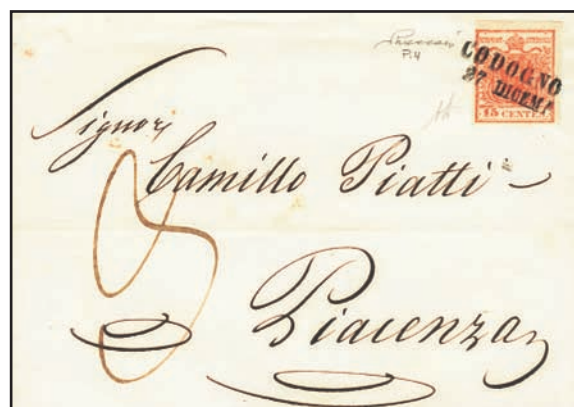 P.4
CODOGNO
27 DICEMB.
15 CENTES
Signor
Camillo Piatti
Piacenza